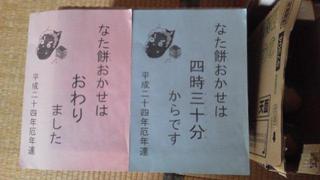 なた餅おかせは
四時三十分
からです
平成二十四年厄年連
なた餅おかせは
おわり
ました
平成二十四年厄年連